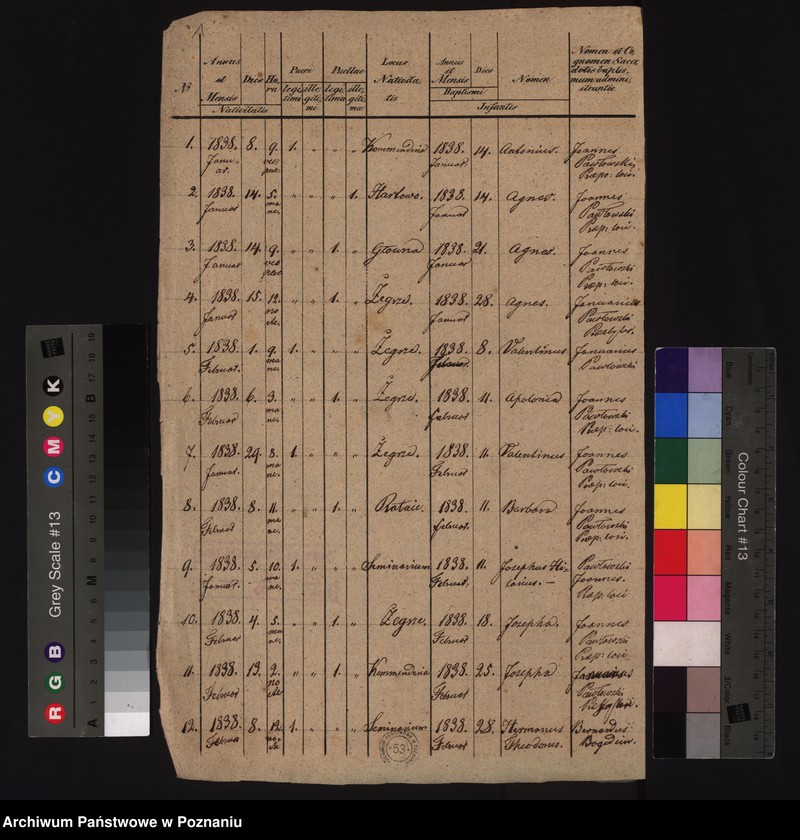 Annus et Mensis Dies Hora Pueri Puellae Locus Nativitatis Annus et Mensis Dies Nomen Nomen et Cognomen Sacerdotis baptismum administrantis
No legitimi illegitimi legitima illegitima Baptismi
Nativitatis Infantis
1. 1838. 8. 9. 1. " " " Kommenderia 1838. 14. Antonius. Joannes
Januar. vespere Januar Pawłowski
Præp: loci.
2. 1838. 14. 5. " " " 1. 1838. 14. Agnes. Joannes
Januar mane. Januar Pawłowski
Præp: loci.
3. 1838. 14. 9. " " 1. " Głowna 1838. 21. Agnes. Joannes
Januar vespere Januar Pawłowski
Præp: loci.
4. 1838. 15. 12. " " 1. " Żegrze. 1838. 28. Agnes. Januarius
Januar nocte. Januar Pawłowski
5. 1838. 1. 9. 1. " " " Żegrze. 1838. 8. Valentinus Januarius
Februar. mane. Februar. Pawłowski
6. 1838 6. 3. " " 1. " Żegrze. 1838. 11. Apolonia Joannes
Februar mane. Februar Pawłowski
Præp: loci.
7. 1838. 29. 8. 1. " " " Żegrze. 1838. 11. Valentinus Joannes
Januar. mane. Februar Pawłowski
Præp: loci.
8. 1838. 8. 11. " " 1. " Rataie. 1838. 11. Barbara Joannes
Februar mane. Februar. Pawłowski
Præp: loci.
9. 1838. 5. 10. 1. " " " Seminarium 1838. 11. Josephus Hi- Pawłowski
Januar. mane. Februar. larius. — Joannes.
Præp: loci
10. 1838. 4. 5. " " 1. " Żegrze. 1838. 18. Josepha. Joannes
Februar mane. Februar Pawłowski
Præp: loci.
11. 1838. 13. 2. " " 1. " Kommenderia 1838. 25. Josepha
Februar nocte Februar Pawłowski
12. 1838. 8. 12. 1. " " " Seminarium 1838. 28. Hermanus Bernardus
Februa Februar Theodorus. Bogedein.
53
Grey Scale #13
R G B C M Y K
A 1 2 3 4 5 6 M 8 9 10 11 12 13 14 15 B 17 18 19
Colour Chart #13
Blue Cyan Green Yellow Red Magenta White 3/Color Black
Archiwum Państwowe w Poznaniu